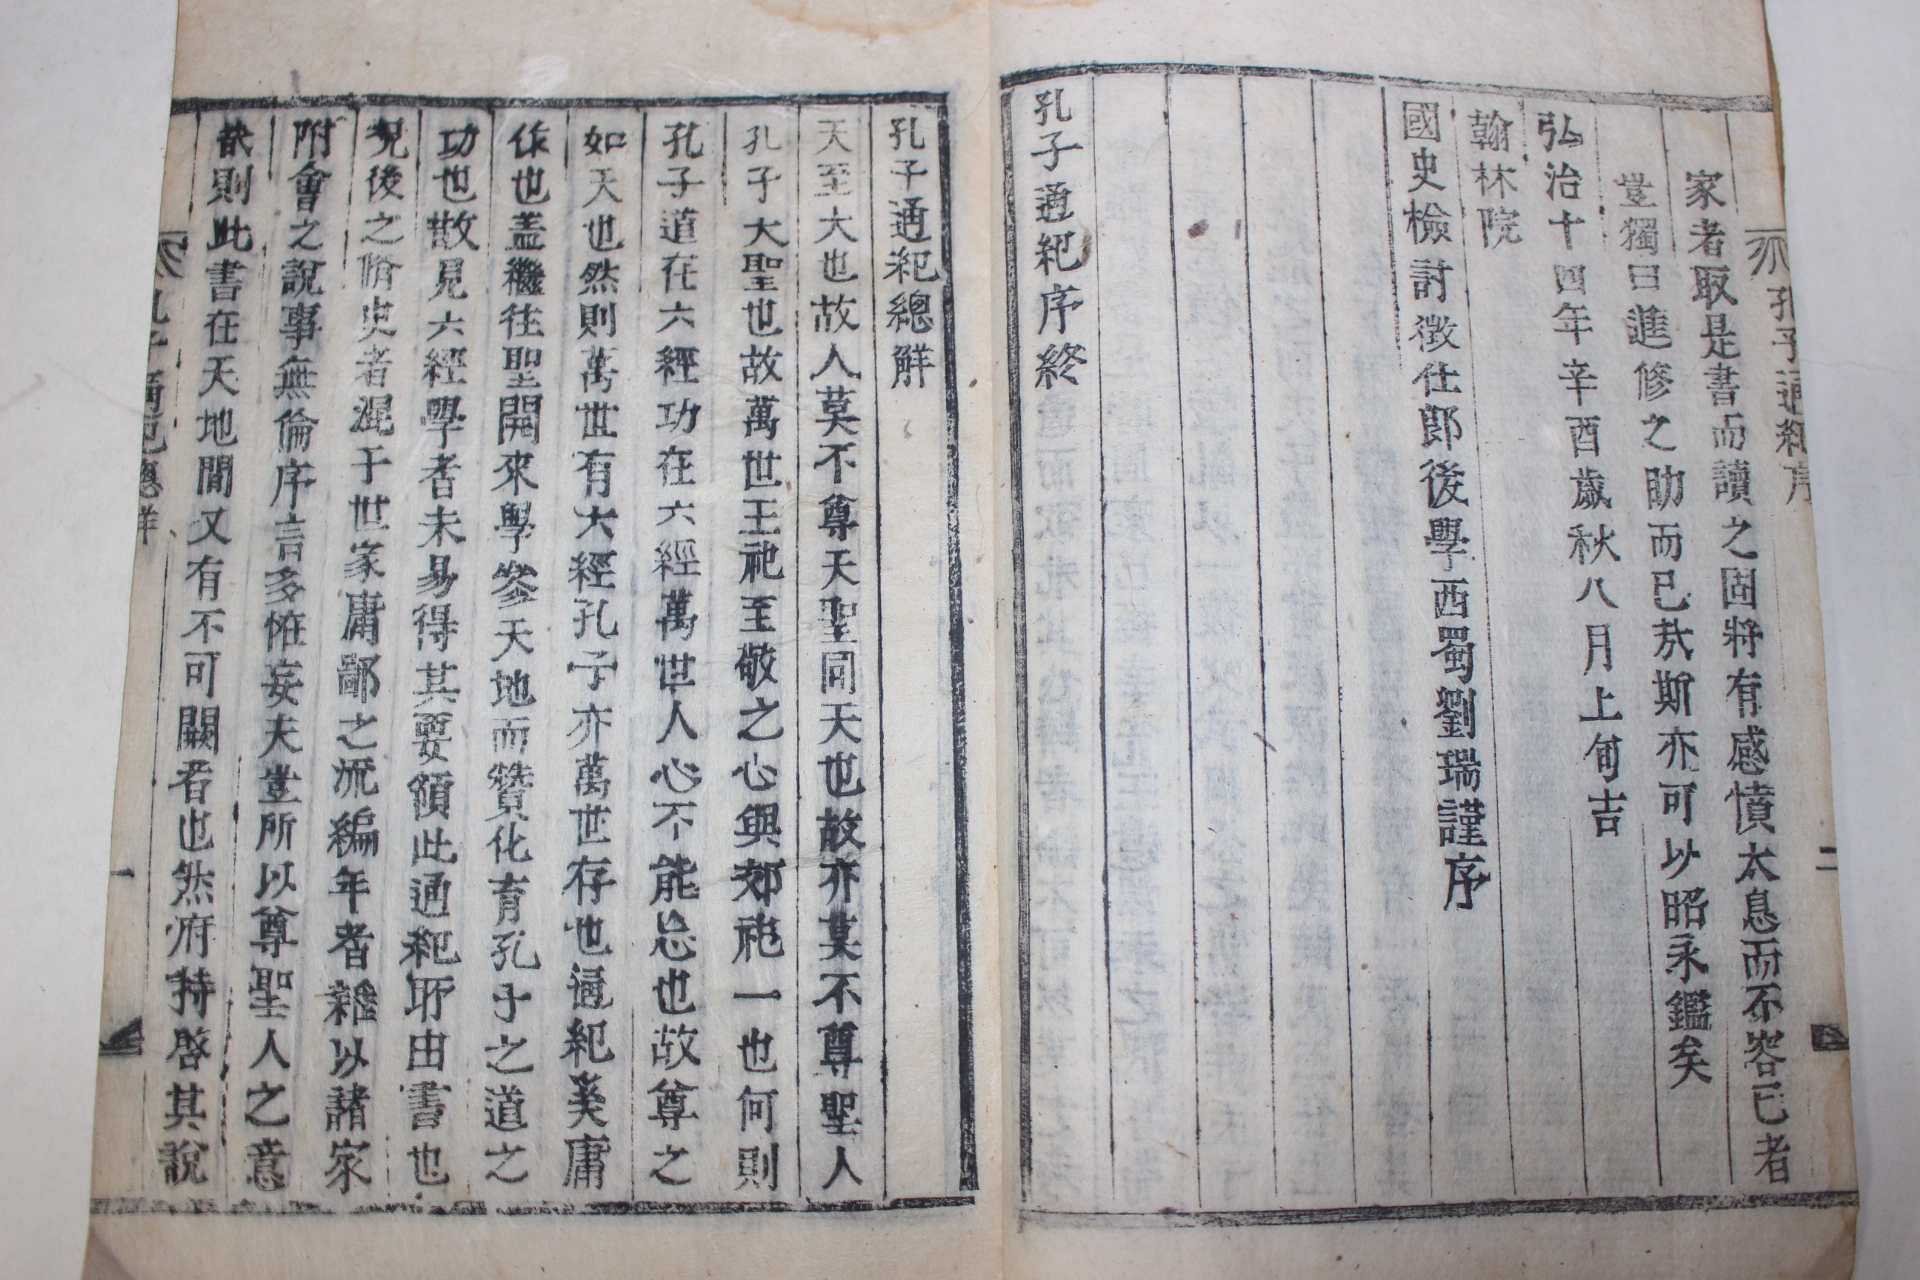 孔子通紀序
二
家者取是書而讀之固將有感憤太息而不容已者
豈獨曰進修之助而已㢤斯亦可以昭永鑑矣
弘治十四年辛酉歲秋八月上旬吉
翰林院
國史檢討徵仕郎後學西蜀劉瑞謹序
孔子通紀序終
孔子通紀總觧
天至大也故人莫不尊天聖同天也故亦莫不尊聖人
孔子大聖也故萬世王祀至敬之心與郊祀一也何則
孔子道在六經功在六經萬世人心不能忘也故尊之
如天也然則萬世有六經孔子亦萬世存也通紀奚庸
作也盖繼往聖開來學參天地而贊化育孔子之道之
功也散見六經學者未易得其要領此通紀所由書也
況後之脩史者混于世家庸鄙之流編年者雜以諸家
附會之說事無倫序言多恠妄夫豈所以尊聖人之意
㢤則此書在天地間又有不可闕者也然府特啓其說
孔子通紀總觧
一